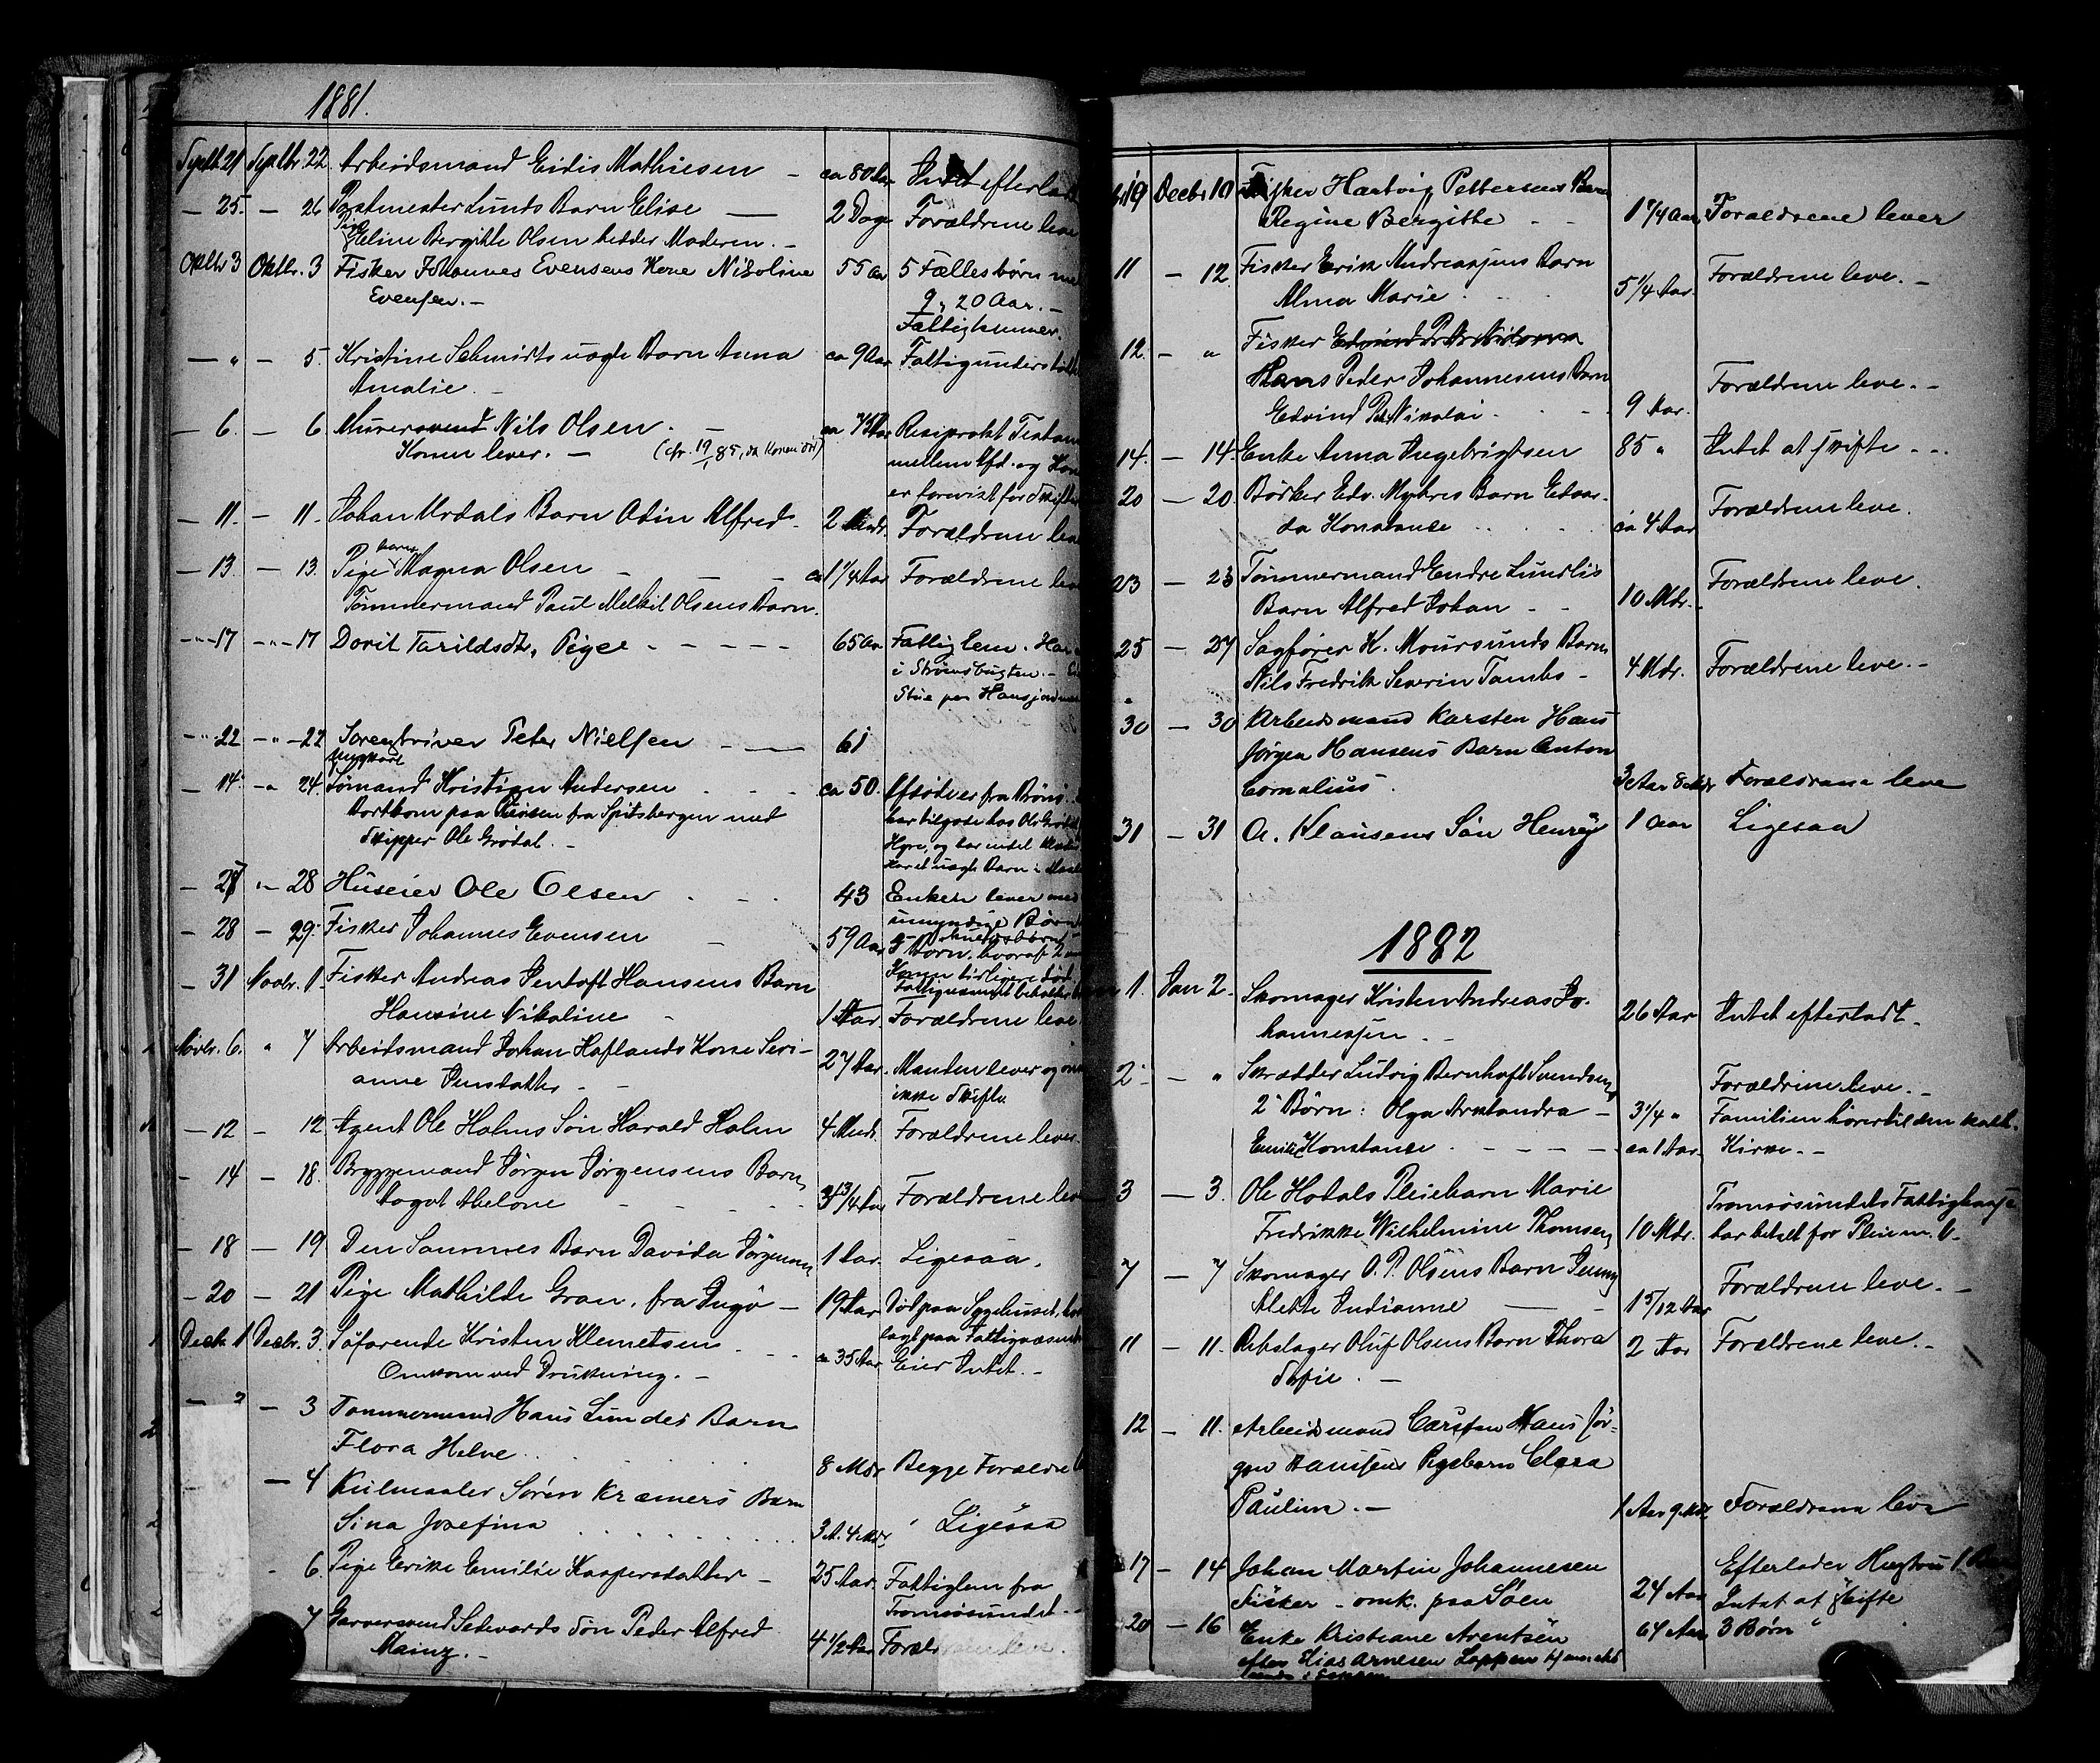 1881.
Septb 21 Septbr. 22 Arbeidsmand Eidis Mathiesen - ca 80 Aar Intet efterladt
- 25. - 26 Postmester Lunds Barn Elise - 2 Dage Forældrene leve
Pige Eline Bergitte Olsen hedder Moderen. -
Oktbr 3 Oktbr. 3 Fisker Johannes Evensens Kone Nikoline 55 Aar 5 Fællesbørn
Evensen. - 9, 20 Aar. -
Fattiglemmer.
- " - 5. Kristine Schmidts uægte Barn Anna ca 9 Aar Fattigunderstøtt
Amalie. -
- 6. - 6 Murersvend Nils Olsen. - Resiprokt Testam
Konen lever. - (cfr. 19/1 85, da Konen død) mellem Afd. og Kone
er forevist for Skifte
- 11. - 11. Johan Urdals Barn Odin Alfred - 2 Mndr. Forældrene leve
- 13. - 13. Pigebarn Magna Olsen - - - ca 1 1/4 Aar Forældrene leve
Tømmermand Paul Melkil Olsens Barn.
- " - 17 - " - 17 Dorit Tarildsdtr, Pige - - - - 65 Aar Fattiglem. Har
i Strømsbugten. -
Stue paa Hansjord
- " - 22 - " - 22 Peter Nielsen - - 61
Ungkarl
- 14. - " 24 Sømand Kristian Andersen - - - ca 50. Afsøde er fra Brønø.
Bortkom paa Reisen fra Spitsbergen med har tilgode hos Ole Grødal
Skipper Ole Grødal. - Hyre, og har indsl
har et uægte Barn i
- 27 " - 28 Huseier Ole Olsen - - - 43 Enken lever med
umyndige Børn
- 28 - 29. Fisker Johannes Evensen - 59 Aar 5 Børn, hvoraf 2
Konen tidligere død.
Fattigvæsenet beholder
- 31 Novbr. 1 Fisker Andreas Pentoft Hansens Barn
Hansine Nikoline - 1 Aar Forældrene leve
Novbr. 6. " 7 Arbeidsmand Johan Haflands Kone Seri- 27 Aar. Manden lever og
anne Jensdatter - - ikke Skifte
- 12 - 12 Agent Ole Holms Søn Harald Holm 4 Mndr. Forældrene lever.
- 14 - 18. Bryggemand Jørgen Jørgensens Barn
Aagot Abelone - - - 3 3/4 Aar Forældrene leve
- 18 - 19 Den Sammes Barn Davida Jørgensen 1 Aar Ligesaa.
- 20 - 21 Pige Mathilde Gran, fra Ingø - 19 Aar Død paa Sygehuset,
lagt paa Fattigvæsenets
Decbr. 1 Decbr. 3. Søfarende Kristen Klemetsen - - - ca 35 Aar Eier Intet. -
Omkom ved Drukning. -
- 3 - 3 Tømmermand Hans Lundes Barn
Flora Helve 8 Mdr. Begge Forældre
- 4 Kulmaaler Søren Kræmers Barn
Sina Josefina 3 A. 4 Mdr. Ligesaa
- 6. Pige Erikke Emilie Kaspersdatter - 25 Aar. Fattiglem fra
Tromsøsundet -
7 Garversvend Sedwards Søn Peder Alfred
Mainz. - 4 1/2 Aar Foræl
19 Decbr. 10 Fisker Hartvig Pettersens Barn
Regine Bergitte - - Forældrene lever
11 - 12 Fisker Erik Andreassens Barn
Alma Marie 5 1/4 Aar. Forældrene leve. -
12. - " Fisker
Hans Peder Johannesens Barn
Edvind Pet. Nikolai 9 Aar. Forældrene leve. -
14. - 14. Enke Anna Ingebrigtsen 85 " Intet at skifte - -
20 - 20. Bødker Edv. Myhres Barn Edvar-
da Konstanse ca 4 Aar Forældrene leve.
23 - 23 Tømmermand Endre Lundlis
Barn Alfred Johan - - 10 Mdr. Forældrene leve.
25 - 27 Sagfører K. Moursunds Barn
Nils Fredrik Severin Tambs - 4 Mdr. Forældrene leve. -
30 - 30 Arbeidsmand Karsten Hans
Jørgen Hansens Barn Anton
Cornelius 3 Aar 8 Mdr Forældrene leve
31 - 31 A. Klausens Søn Henrÿ 1 Aar Ligesaa
1882
1. Jan 2. Skomager Kristen Andreas Jo-
hannessen - - 26 Aar Intet efterladt.
2. - " Skrædder Ludvig Bernhoft Svendsens Forældrene leve. -
2 Børn: Olga Arxlandra - 3 1/4 " Familien hører til den kath.
Emilie Konstanse - - - - ca 1 Aar Kirke. -
3 - 3. Ole Hodals Pleiebarn Marie Tromsøsundets Fattigkasse
Fredrikke Wilhelmine Thomsen 10 Mdr. har betalt for Pleie m. V.
7 - 7 Skomager O. P. Olsens Barn Jenny
Alette Indianne - - 1 5/12 Aar Forældrene leve. -
11 - 11. Rebslager Oluf Olsens Barn Thora 2 Aar Forældrene leve. -
Sofie. -
12 - 11. Arbeidsmand Carsten Hans Jør-
gen Hansens Pigebarn Clara
Pauline. - 1 Aar 9 Mdr Forældrene leve
17 - 14 Johan Martin Johannesen Efterlader Hustru 1 Barn
Fisker - omk. paa Søen 24 Aar Intet at skifte
20 - 16 Enke Kristiane Arentsen 64 Aar 3 Børn "
efter Elias Arnesen Loppen